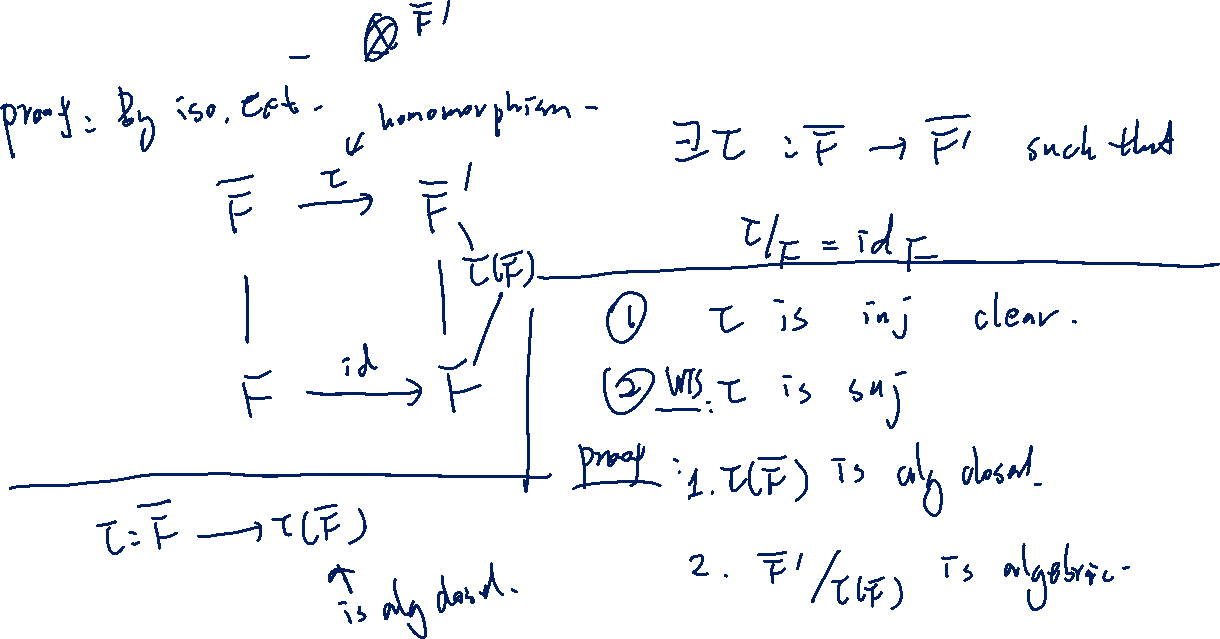 F̅'
proof: By iso. ext. homomorphism
F̅ τ→ F̅'
τ(F̅)
F id→ F
∃τ : F̅ → F̅' such that
τ/F = id F
① τ is inj clear.
② WTS: τ is suj
proof: 1. τ(F̅) is alg closed.
2. F̅'/τ(F̅) is algebraic.
τ: F̅ → τ(F̅)
↑
is alg closed.